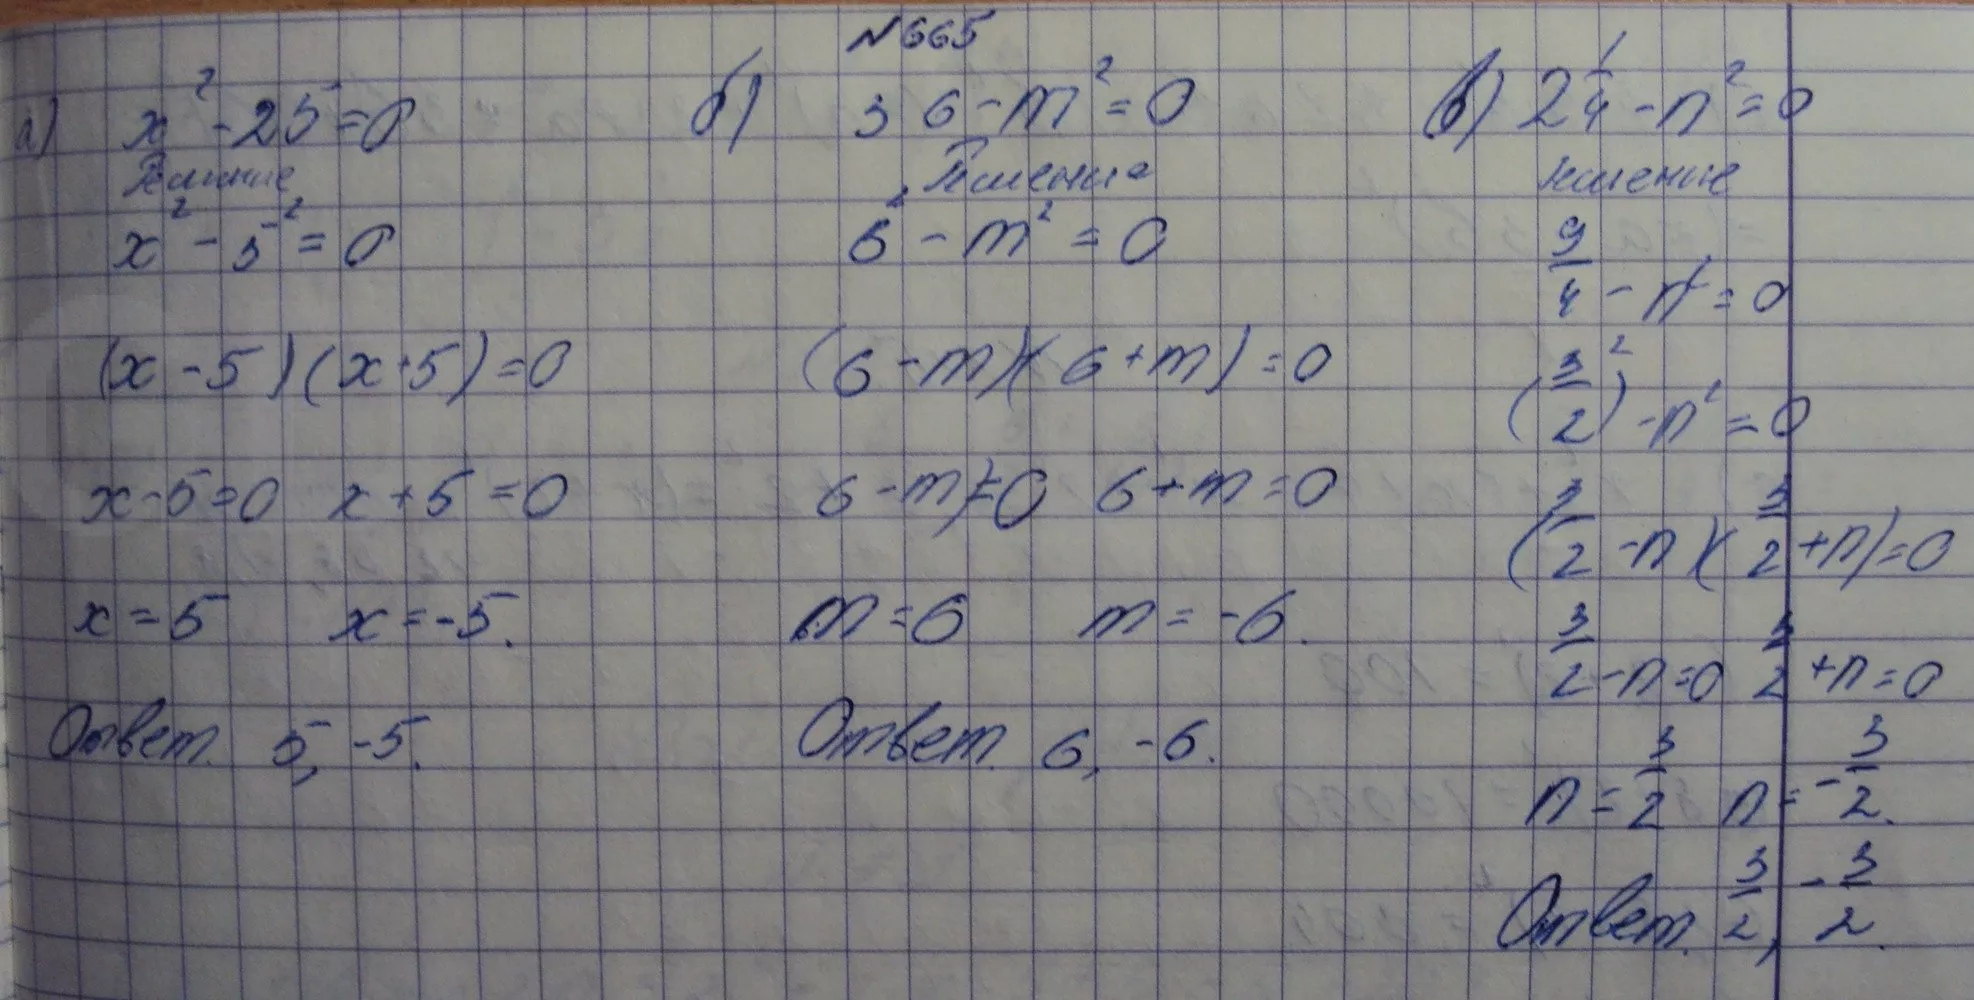 №665
а) x² - 25 = 0
Решение
x² - 5² = 0
(x - 5)(x + 5) = 0
x - 5 = 0 x + 5 = 0
x = 5 x = -5.
Ответ. 5, -5.
б) 36 - m² = 0
Решение
6² - m² = 0
(6 - m)(6 + m) = 0
6 - m = 0 6 + m = 0
m = 6 m = -6.
Ответ. 6, -6.
в) 2 1/4 - n² = 0
Решение
9/4 - n² = 0
(3/2)² - n² = 0
(3/2 - n)(3/2 + n) = 0
3/2 - n = 0 3/2 + n = 0
n = 3/2 n = -3/2.
Ответ. 3/2, -3/2.